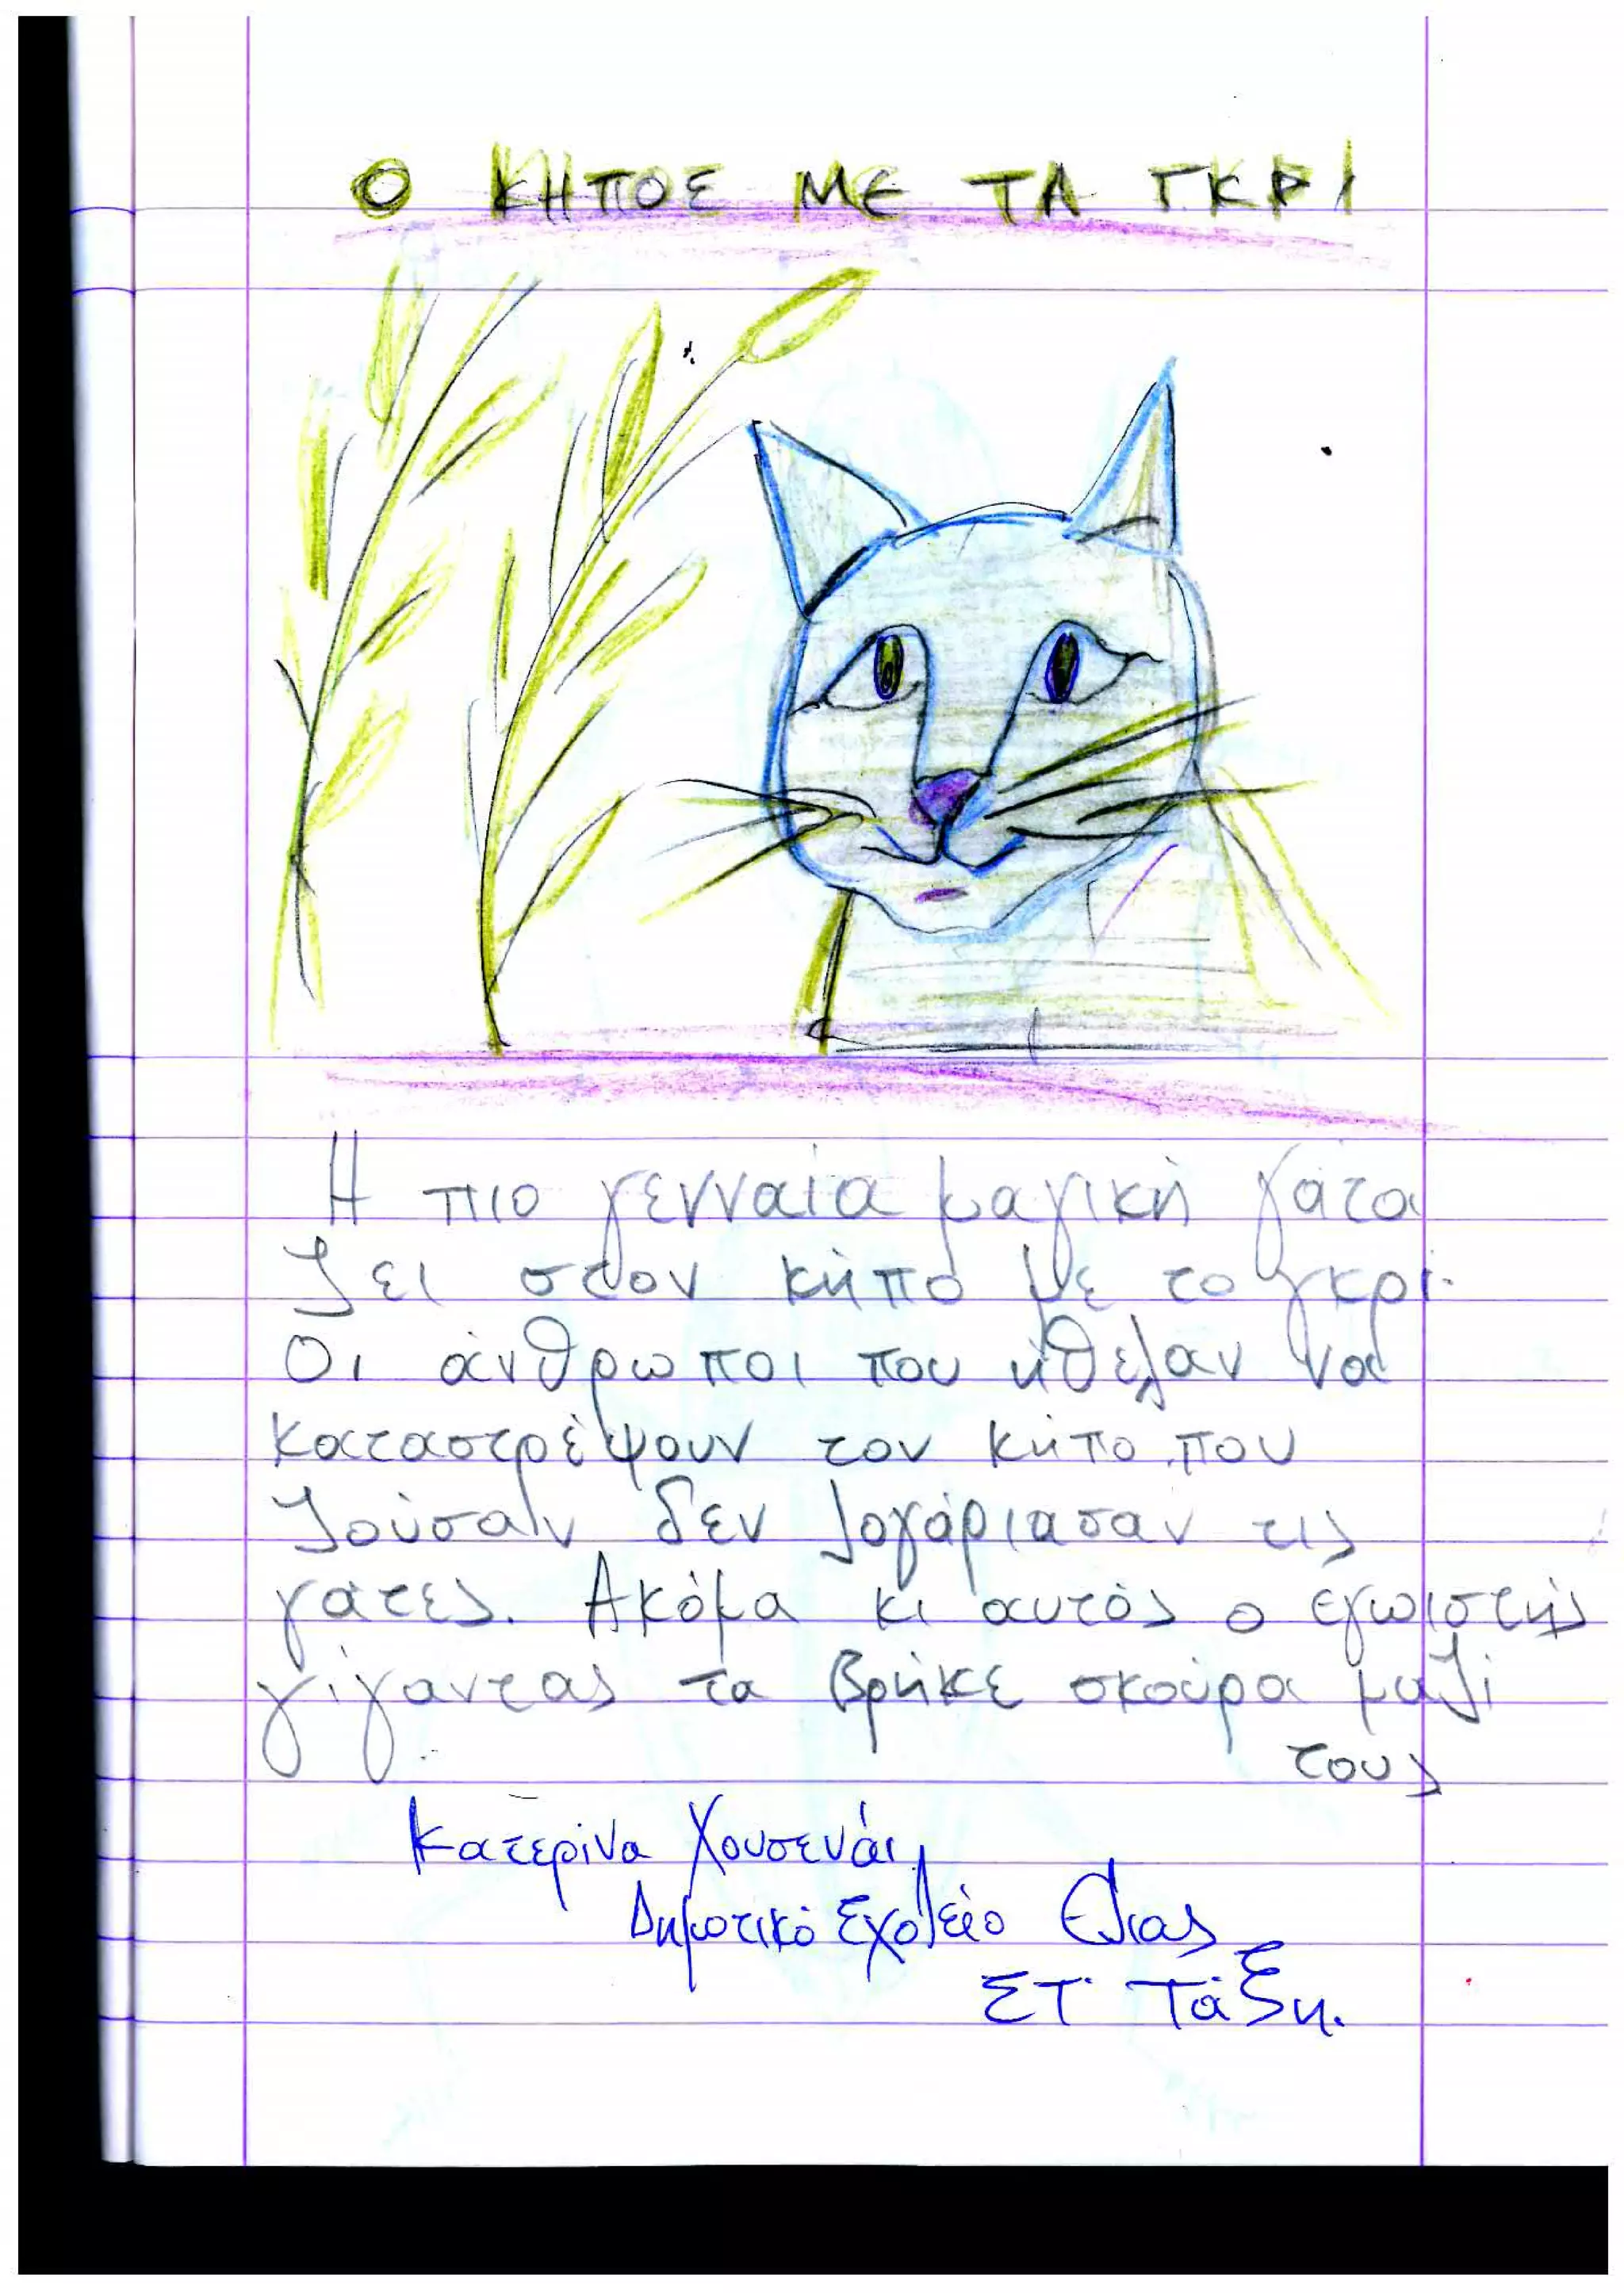 Ο ΚΗΠΟΣ ΜΕ ΤΑ ΓΚΡΙ
Η πιο γενναία μαγική γάτα
ζει στον κήπο με το γκρι.
Οι άνθρωποι που ήθελαν να
καταστρέψουν τον κήπο που
ζούσαν δεν λογάριασαν τις
γάτες. Ακόμα κι αυτός ο εγωιστής
γίγαντας τα βρήκε σκούρα μαζί
τους
Κατερίνα Χουσενάι
Δημοτικό Σχολείο Ελιας
ΣΤ' Τάξη.